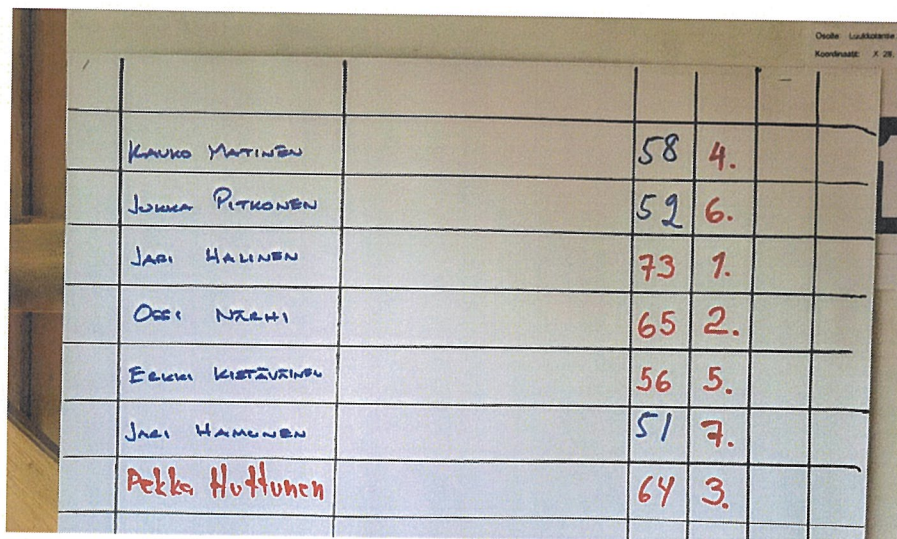 Osoite: Luukkolantie
Koordinaatit: X 28,
KAUKO MATINEN 58 4.
JUKKA PITKONEN 52 6.
JARI HALINEN 73 1.
OSSI NÄRHI 65 2.
ERKKI KIETÄVÄINEN 56 5.
JARI HAMUNEN 51 7.
Pekka Huttunen 64 3.